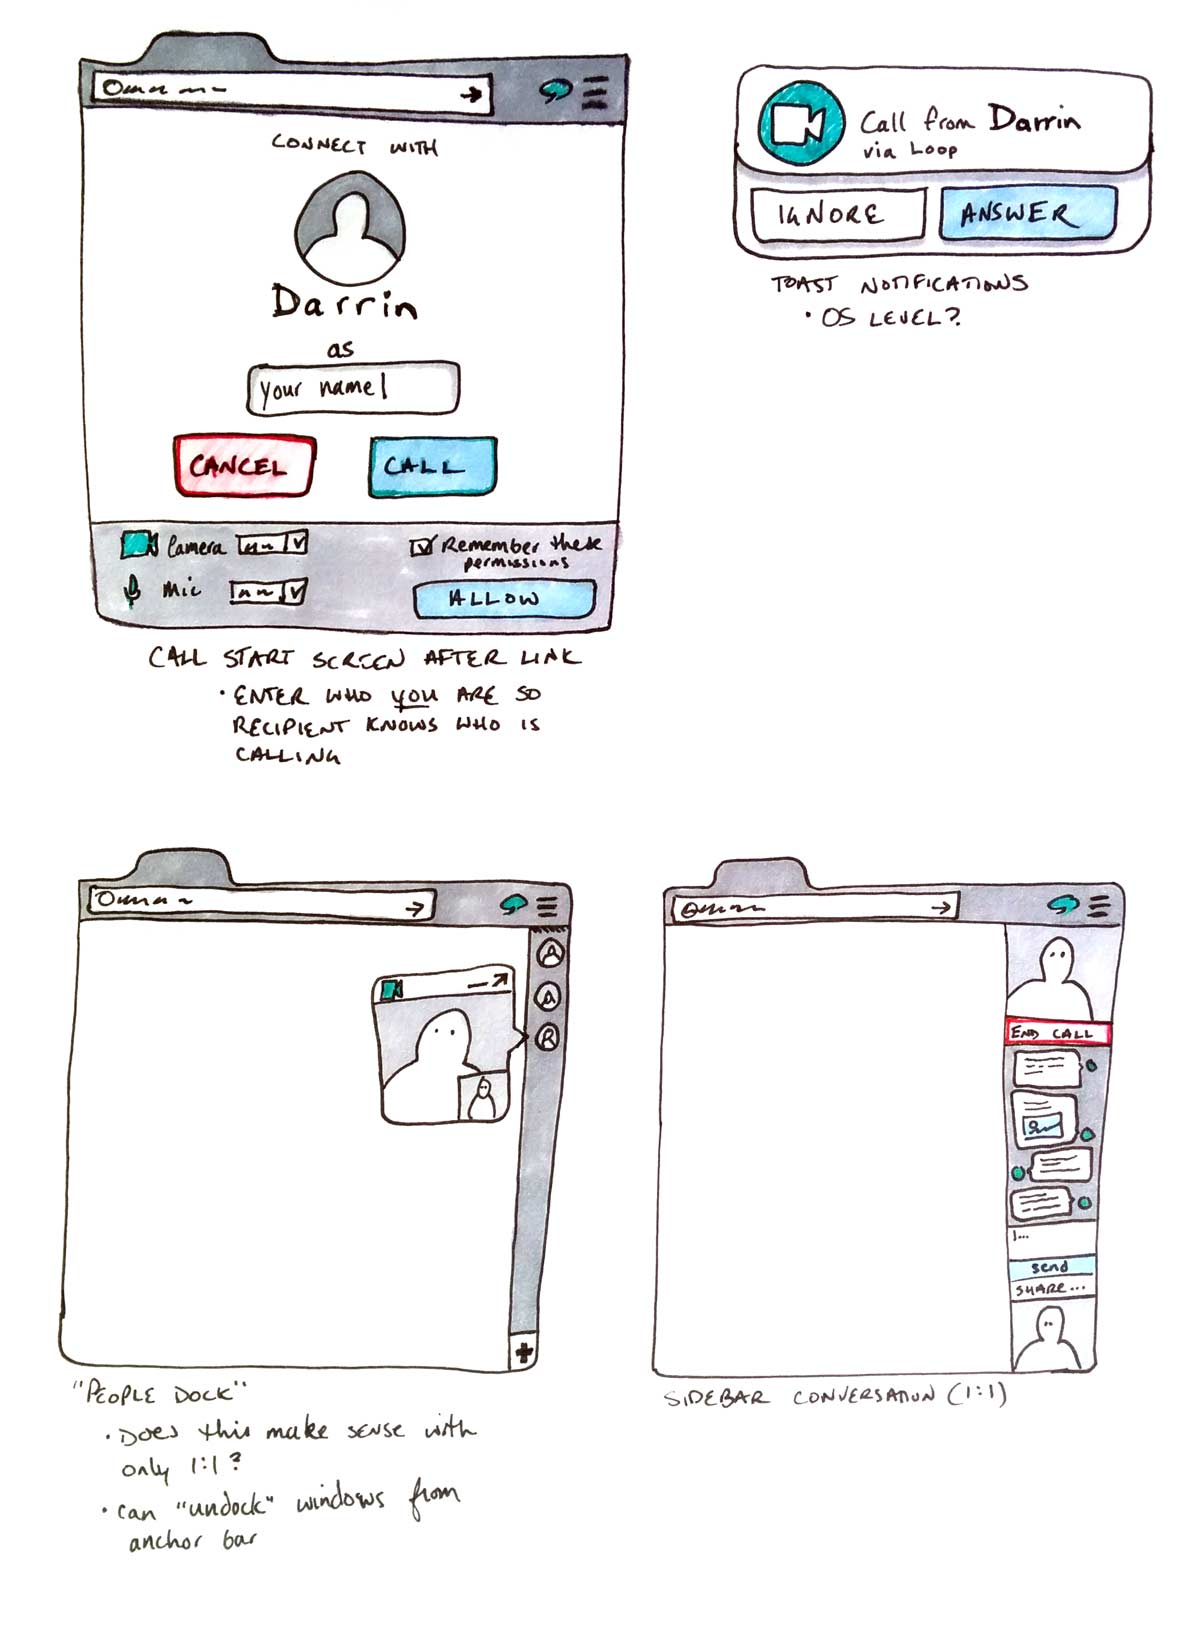 CONNECT WITH
Darrin
as
your name
CANCEL
CALL
Camera
Mic
Remember these
permissions
ALLOW
CALL START SCREEN AFTER LINK
• ENTER WHO YOU ARE SO
RECIPIENT KNOWS WHO IS
CALLING
Call from Darrin
via Loop
IGNORE
ANSWER
TOAST NOTIFICATIONS
• OS LEVEL?
"PEOPLE DOCK"
• Does this make sense with
only 1:1?
• can "undock" windows from
anchor bar
END CALL
I...
send
SHARE...
SIDEBAR CONVERSATION (1:1)